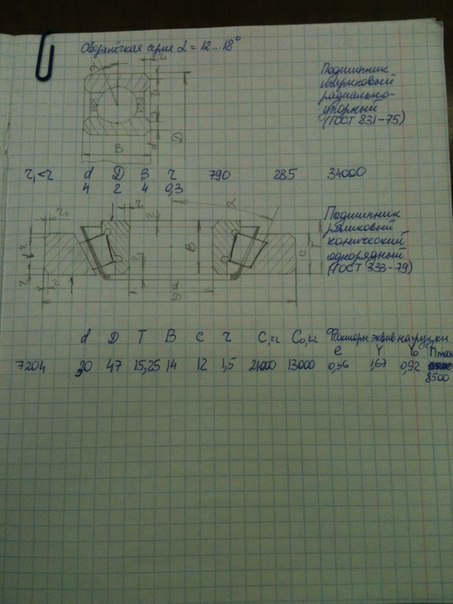 серия α = 12...18°
Подшипник
шариковый
радиально-
упорный
(ГОСТ 831-75)
B
D
r₁<r d D B r 790 285 34000
4 2 4 0,3
Подшипник
роликовый
конический
однорядный
(ГОСТ 333-79)
α
r₁
r
B
C
d
D
d D T B C r C, н C₀, н Факторы эквив нагрузки
e Y Y₀ nmax
7204 20 47 15,25 14 12 1,5 21000 13000 0,36 1,67 0,92
8500